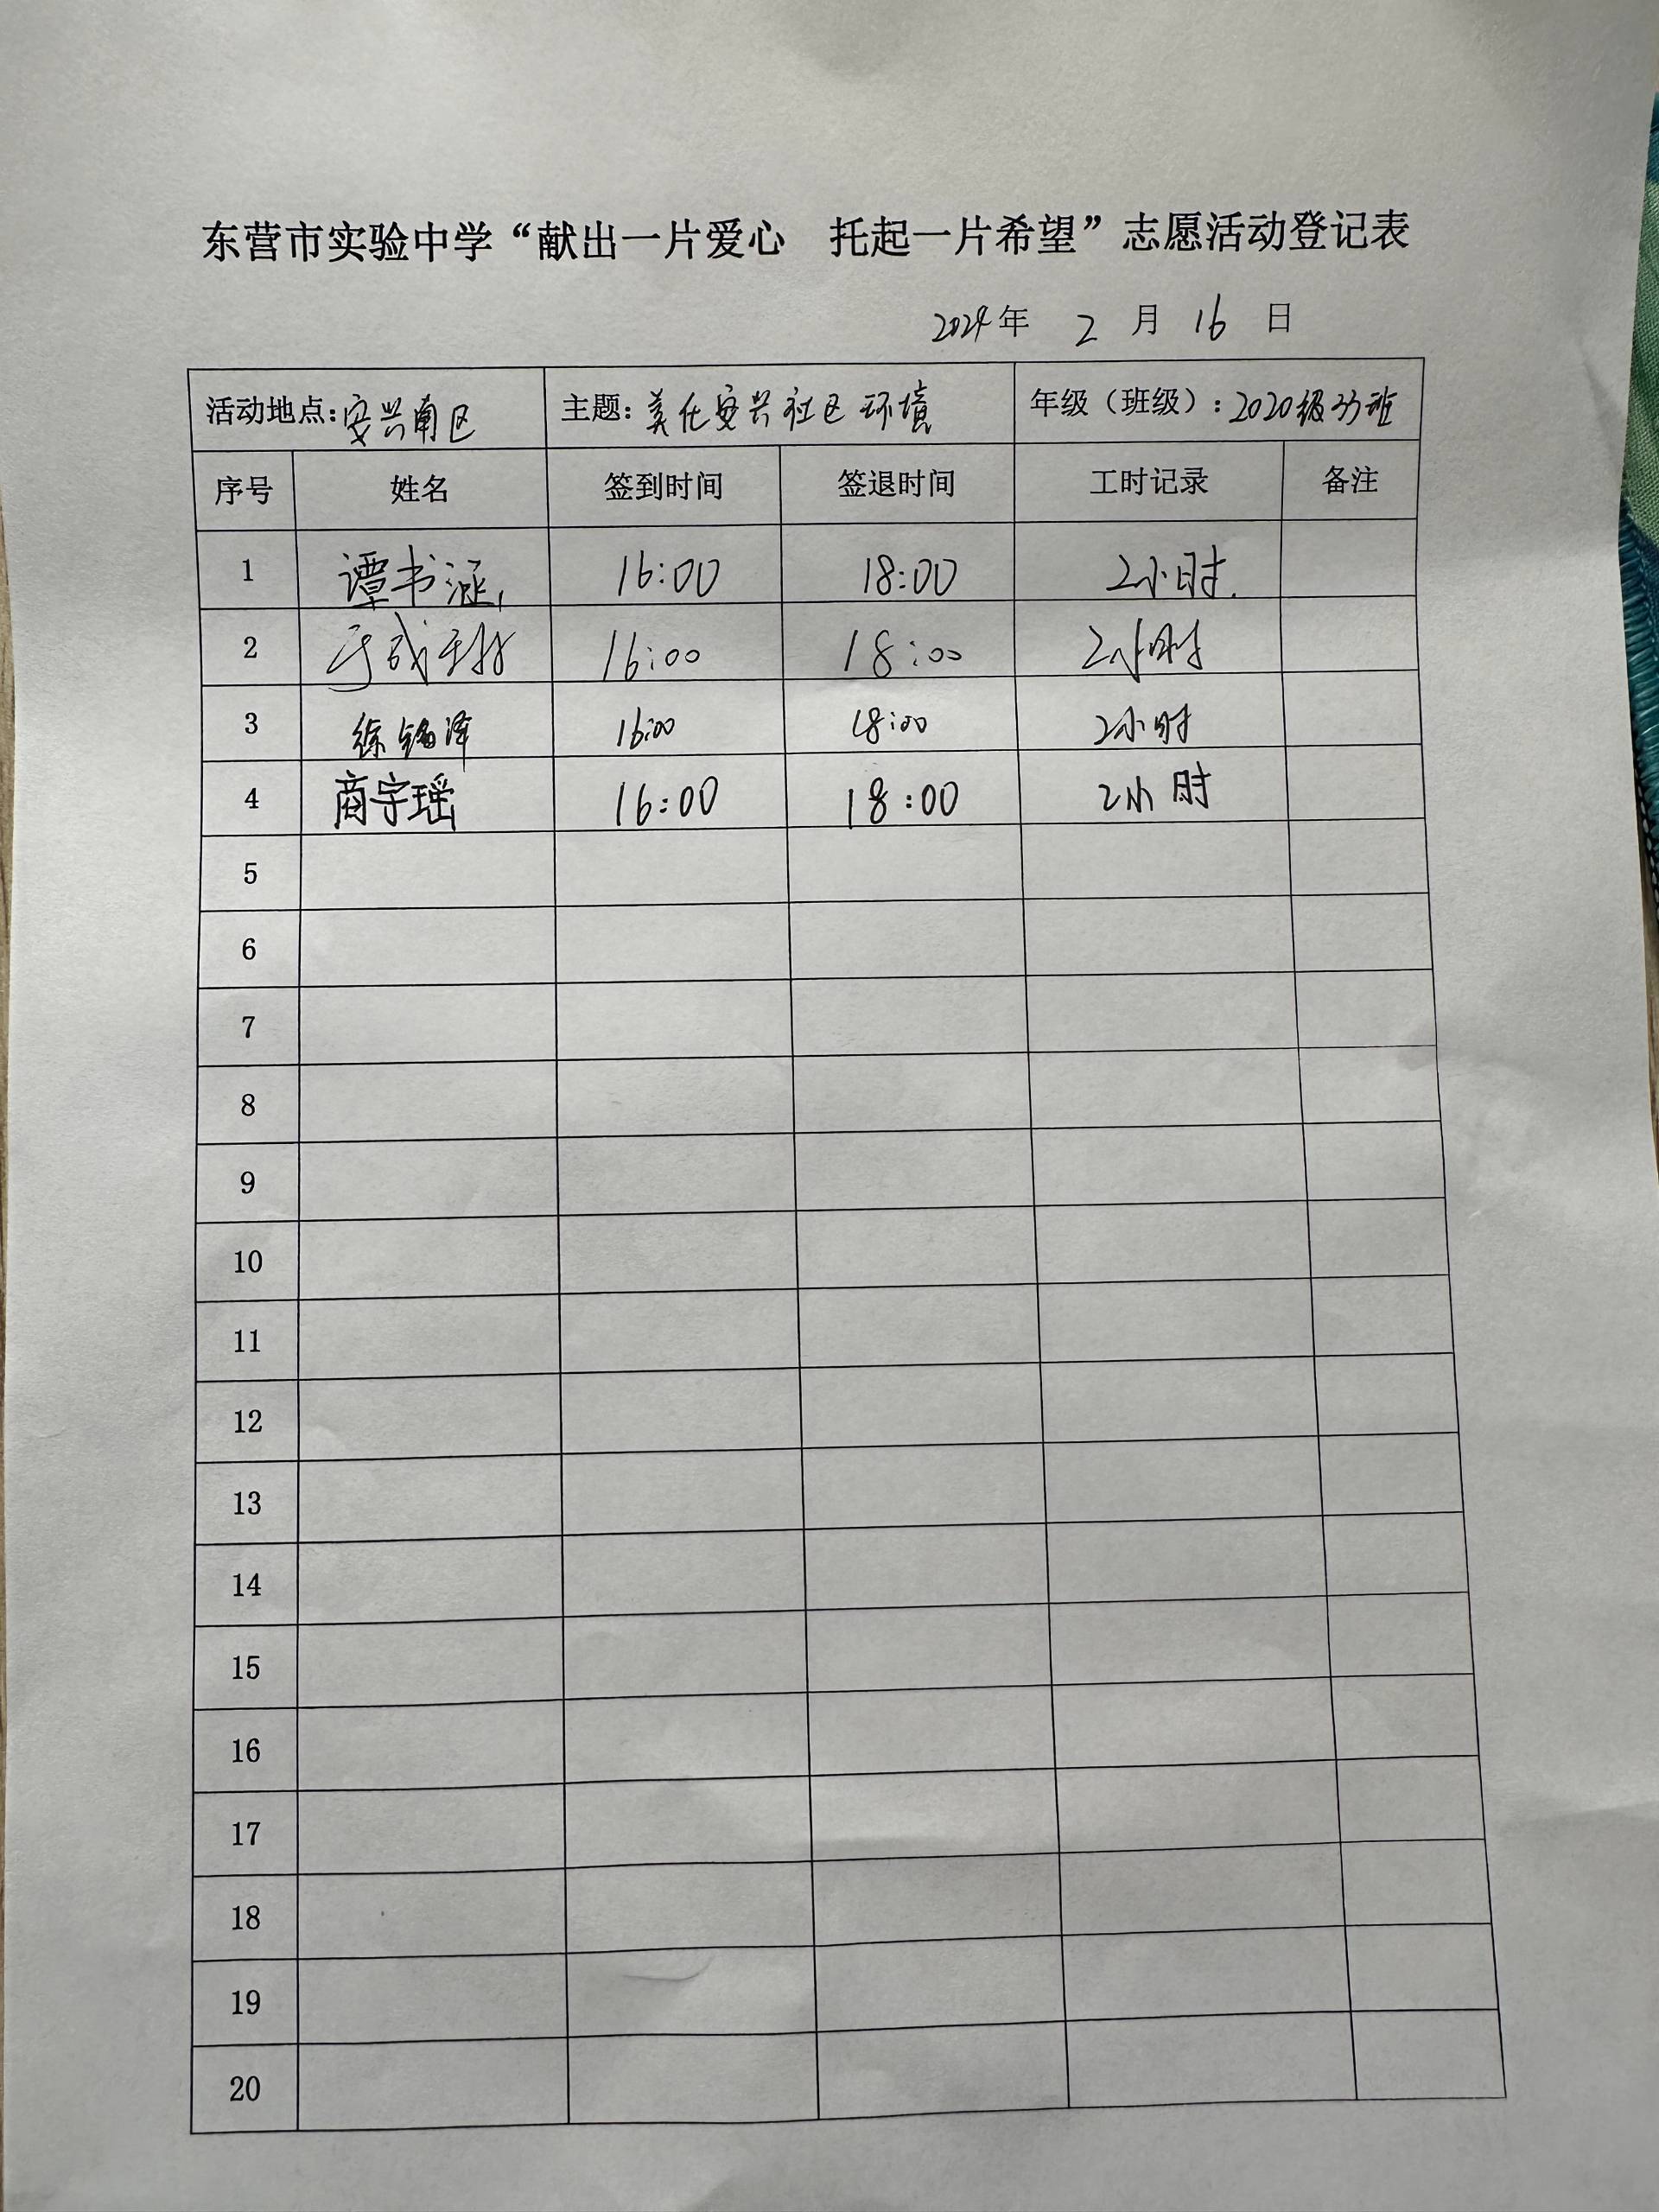 东营市实验中学“献出一片爱心 托起一片希望”志愿活动登记表
2024年 2 月 16 日
活动地点：安兴南区 主题：美化安兴社区环境 年级（班级）：2020级33班
序号 姓名 签到时间 签退时间 工时记录 备注
1 谭书涵 16:00 18:00 2小时.
2 于成 16:00 18:00 2小时
3 徐铭泽 16:00 18:00 2小时
4 商宇瑶 16:00 18:00 2小时
5
6
7
8
9
10
11
12
13
14
15
16
17
18
19
20